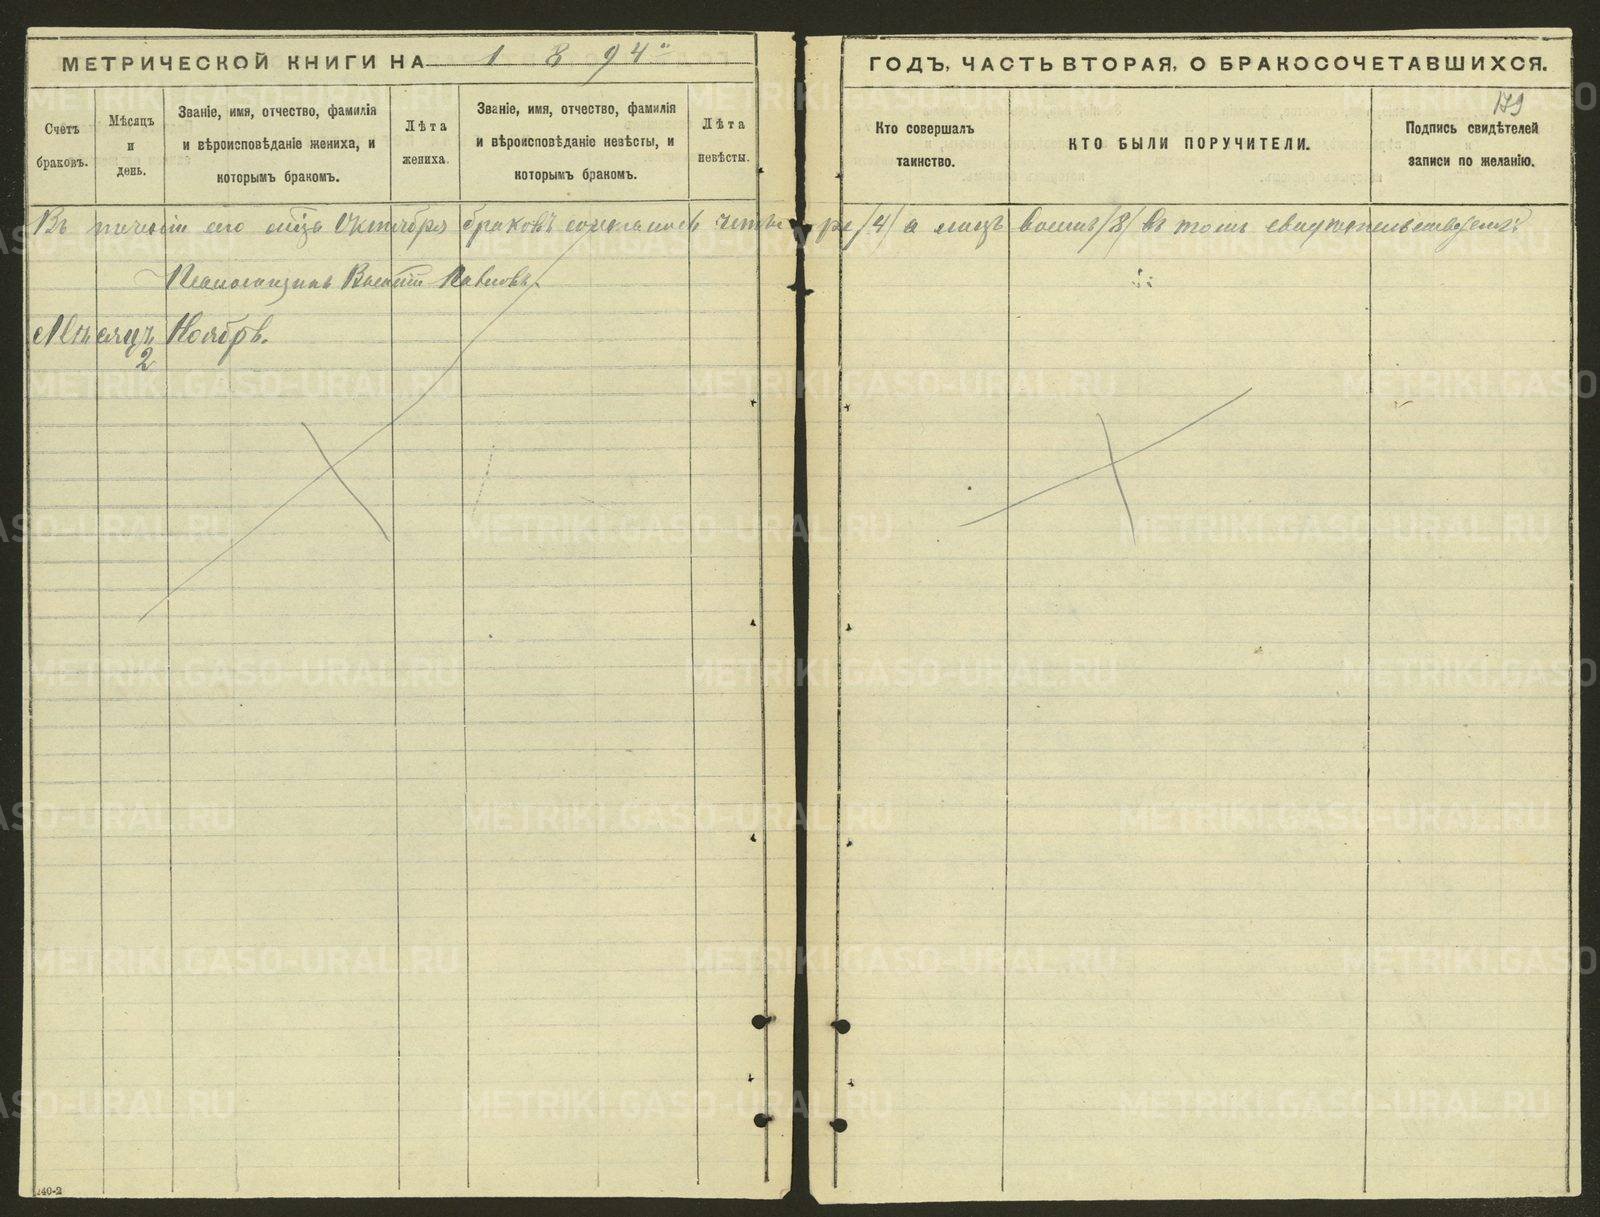 МЕТРИЧЕСКОЙ КНИГИ НА 1894
ГОДЪ, ЧАСТЬ ВТОРАЯ, О БРАКОСОЧЕТАВШИХСЯ.
179
Счетъ браковъ.
Мѣсяцъ и день.
Званіе, имя, отчество, фамилія
и вѣроисповѣданіе жениха, и
которымъ бракомъ.
Лѣта
жениха.
Званіе, имя, отчество, фамилія
и вѣроисповѣданіе невѣсты, и
которымъ бракомъ.
Лѣта
невѣсты.
Кто совершалъ
таинство.
КТО БЫЛИ ПОРУЧИТЕЛИ.
Подпись свидѣтелей
записи по желанію.
Въ теченіи сего м-ца Октября браковъ четыре /4/ а лицъ восемь /8/ въ томъ
Псаломщикъ Павловъ.
Мѣсяцъ Ноябрь.
2
240-2
METRIKI.GASO-URAL.RU